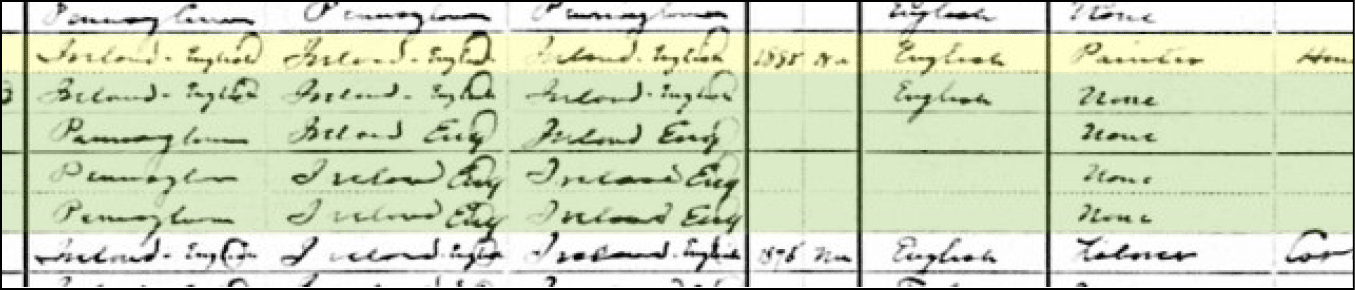 Pennsylvania Pennsylvania Pennsylvania English None
Ireland - English Ireland - English Ireland - English Na English Painter
Ireland - English Ireland - English Ireland - English English None
Pennsylvania Ireland Eng Ireland Eng None
Pennsylvania Ireland Eng Ireland Eng None
Pennsylvania Ireland Eng Ireland Eng None
Ireland - English Ireland - English Ireland - English Na English